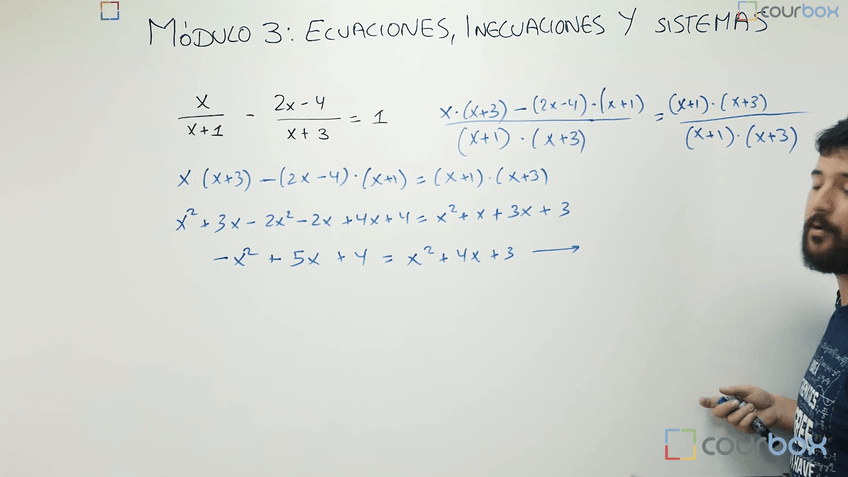 MÓDULO 3: ECUACIONES, INECUACIONES Y SISTEMAS
courbox
x/(x+1) - (2x-4)/(x+3) = 1
(x·(x+3) - (2x-4)·(x+1))/((x+1)·(x+3)) = ((x+1)·(x+3))/((x+1)·(x+3))
x (x+3) - (2x-4)·(x+1) = (x+1)·(x+3)
x² + 3x - 2x² - 2x + 4x + 4 = x² + x + 3x + 3
-x² + 5x + 4 = x² + 4x + 3 →
courbox